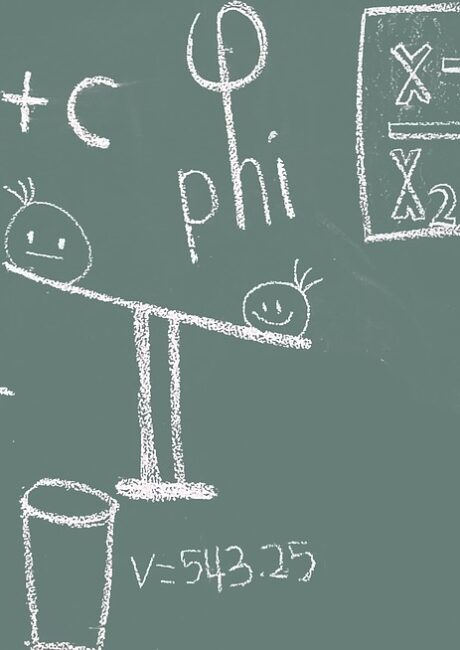 φ
+ c
phi
x -
x2
v=543.25